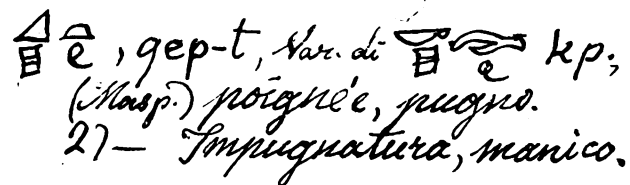 , qep-t, Var. di kp.,
(Masp.) poignée, pugno.
2) — Impugnatura, manico.